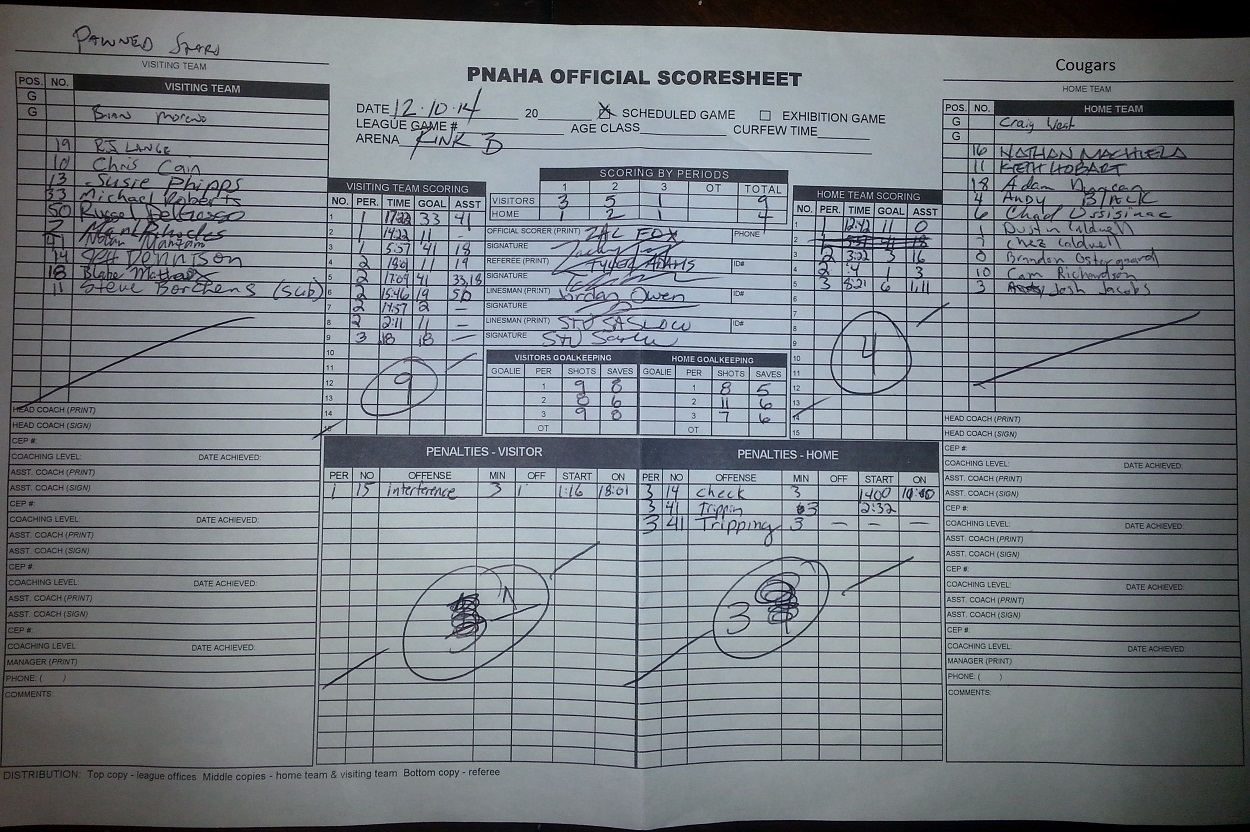 PAWNED STARS
VISITING TEAM
Cougars
HOME TEAM
PNAHA OFFICIAL SCORESHEET
DATE 12.10.14 20 X SCHEDULED GAME ☐ EXHIBITION GAME
LEAGUE GAME # AGE CLASS CURFEW TIME
ARENA RINK B
POS. NO. VISITING TEAM
G
G Brian Moreno
19 RJ LANGE
10 Chris Cain
13 Susie Phipps
33 Michael Roberts
50 Russel DelGrosso
2 Mark Rhodes
41 Nolan
14 Jeff DENNISON
18 Blake
11 Steve Borchers (sub)
VISITING TEAM SCORING
NO. PER. TIME GOAL ASST
1 1 17:22 33 41
2 1 14:22 11 -
3 1 5:57 41 18
4 2 18:01 11 19
5 2 17:09 41 33,18
6 2 15:46 19 50
7 2 14:57 2 —
8 2 2:11 11 —
9 3 18 18 —
10
11
12
13
14
15
9
SCORING BY PERIODS
1 2 3 OT TOTAL
VISITORS 3 5 1 9
HOME 1 2 1 4
OFFICIAL SCORER (PRINT) ZAC FOX PHONE
SIGNATURE
REFEREE (PRINT) TYLER ADAMS ID#
SIGNATURE
LINESMAN (PRINT) Jordan Owen ID#
SIGNATURE
LINESMAN (PRINT) STU SASLOW ID#
SIGNATURE Stu Saslow
VISITORS GOALKEEPING HOME GOALKEEPING
GOALIE PER SHOTS SAVES GOALIE PER SHOTS SAVES
1 9 8 1 8 5
2 8 6 2 11 6
3 9 8 3 7 6
OT OT
HOME TEAM SCORING
PER. TIME GOAL ASST
1 1 12:42 11 0
2
3 2 3:22 3 16
4 2 :4 1 3
5 3 8:21 6 1,11
6
7
8
9
10
11
12
13
14
15
4
POS. NO. HOME TEAM
G Craig West
G
16 NATHAN MACHIELA
11 KEITH HOBART
18 Adam Duncan
4 Andy BLACK
6 Chad
1 Dustin Caldwell
7 Chez Caldwell
8 Brandon Ostergaard
10 Cam Richardson
3 Josh Jacobs
PENALTIES - VISITOR
PER NO OFFENSE MIN OFF START ON
1 15 interference 3 1 1:16 18:01
PENALTIES - HOME
PER NO OFFENSE MIN OFF START ON
3 14 check 3 1400
3 41 Trippin 3 2:32
3 41 Tripping 3 — — —
1
3
HEAD COACH (PRINT)
HEAD COACH (SIGN)
CEP #:
COACHING LEVEL: DATE ACHIEVED:
ASST. COACH (PRINT)
ASST. COACH (SIGN)
CEP #:
COACHING LEVEL: DATE ACHIEVED:
ASST. COACH (PRINT)
ASST. COACH (SIGN)
CEP #:
COACHING LEVEL: DATE ACHIEVED:
ASST. COACH (PRINT)
ASST. COACH (SIGN)
CEP #:
COACHING LEVEL: DATE ACHIEVED:
MANAGER (PRINT)
PHONE: ( )
COMMENTS:
HEAD COACH (PRINT)
HEAD COACH (SIGN)
CEP #:
COACHING LEVEL: DATE ACHIEVED:
ASST. COACH (PRINT)
ASST. COACH (SIGN)
CEP #:
COACHING LEVEL: DATE ACHIEVED:
ASST. COACH (PRINT)
ASST. COACH (SIGN)
CEP #:
COACHING LEVEL: DATE ACHIEVED:
ASST. COACH (PRINT)
ASST. COACH (SIGN)
CEP #:
COACHING LEVEL: DATE ACHIEVED:
MANAGER (PRINT)
PHONE: ( )
COMMENTS:
DISTRIBUTION: Top copy - league offices Middle copies - home team & visiting team Bottom copy - referee